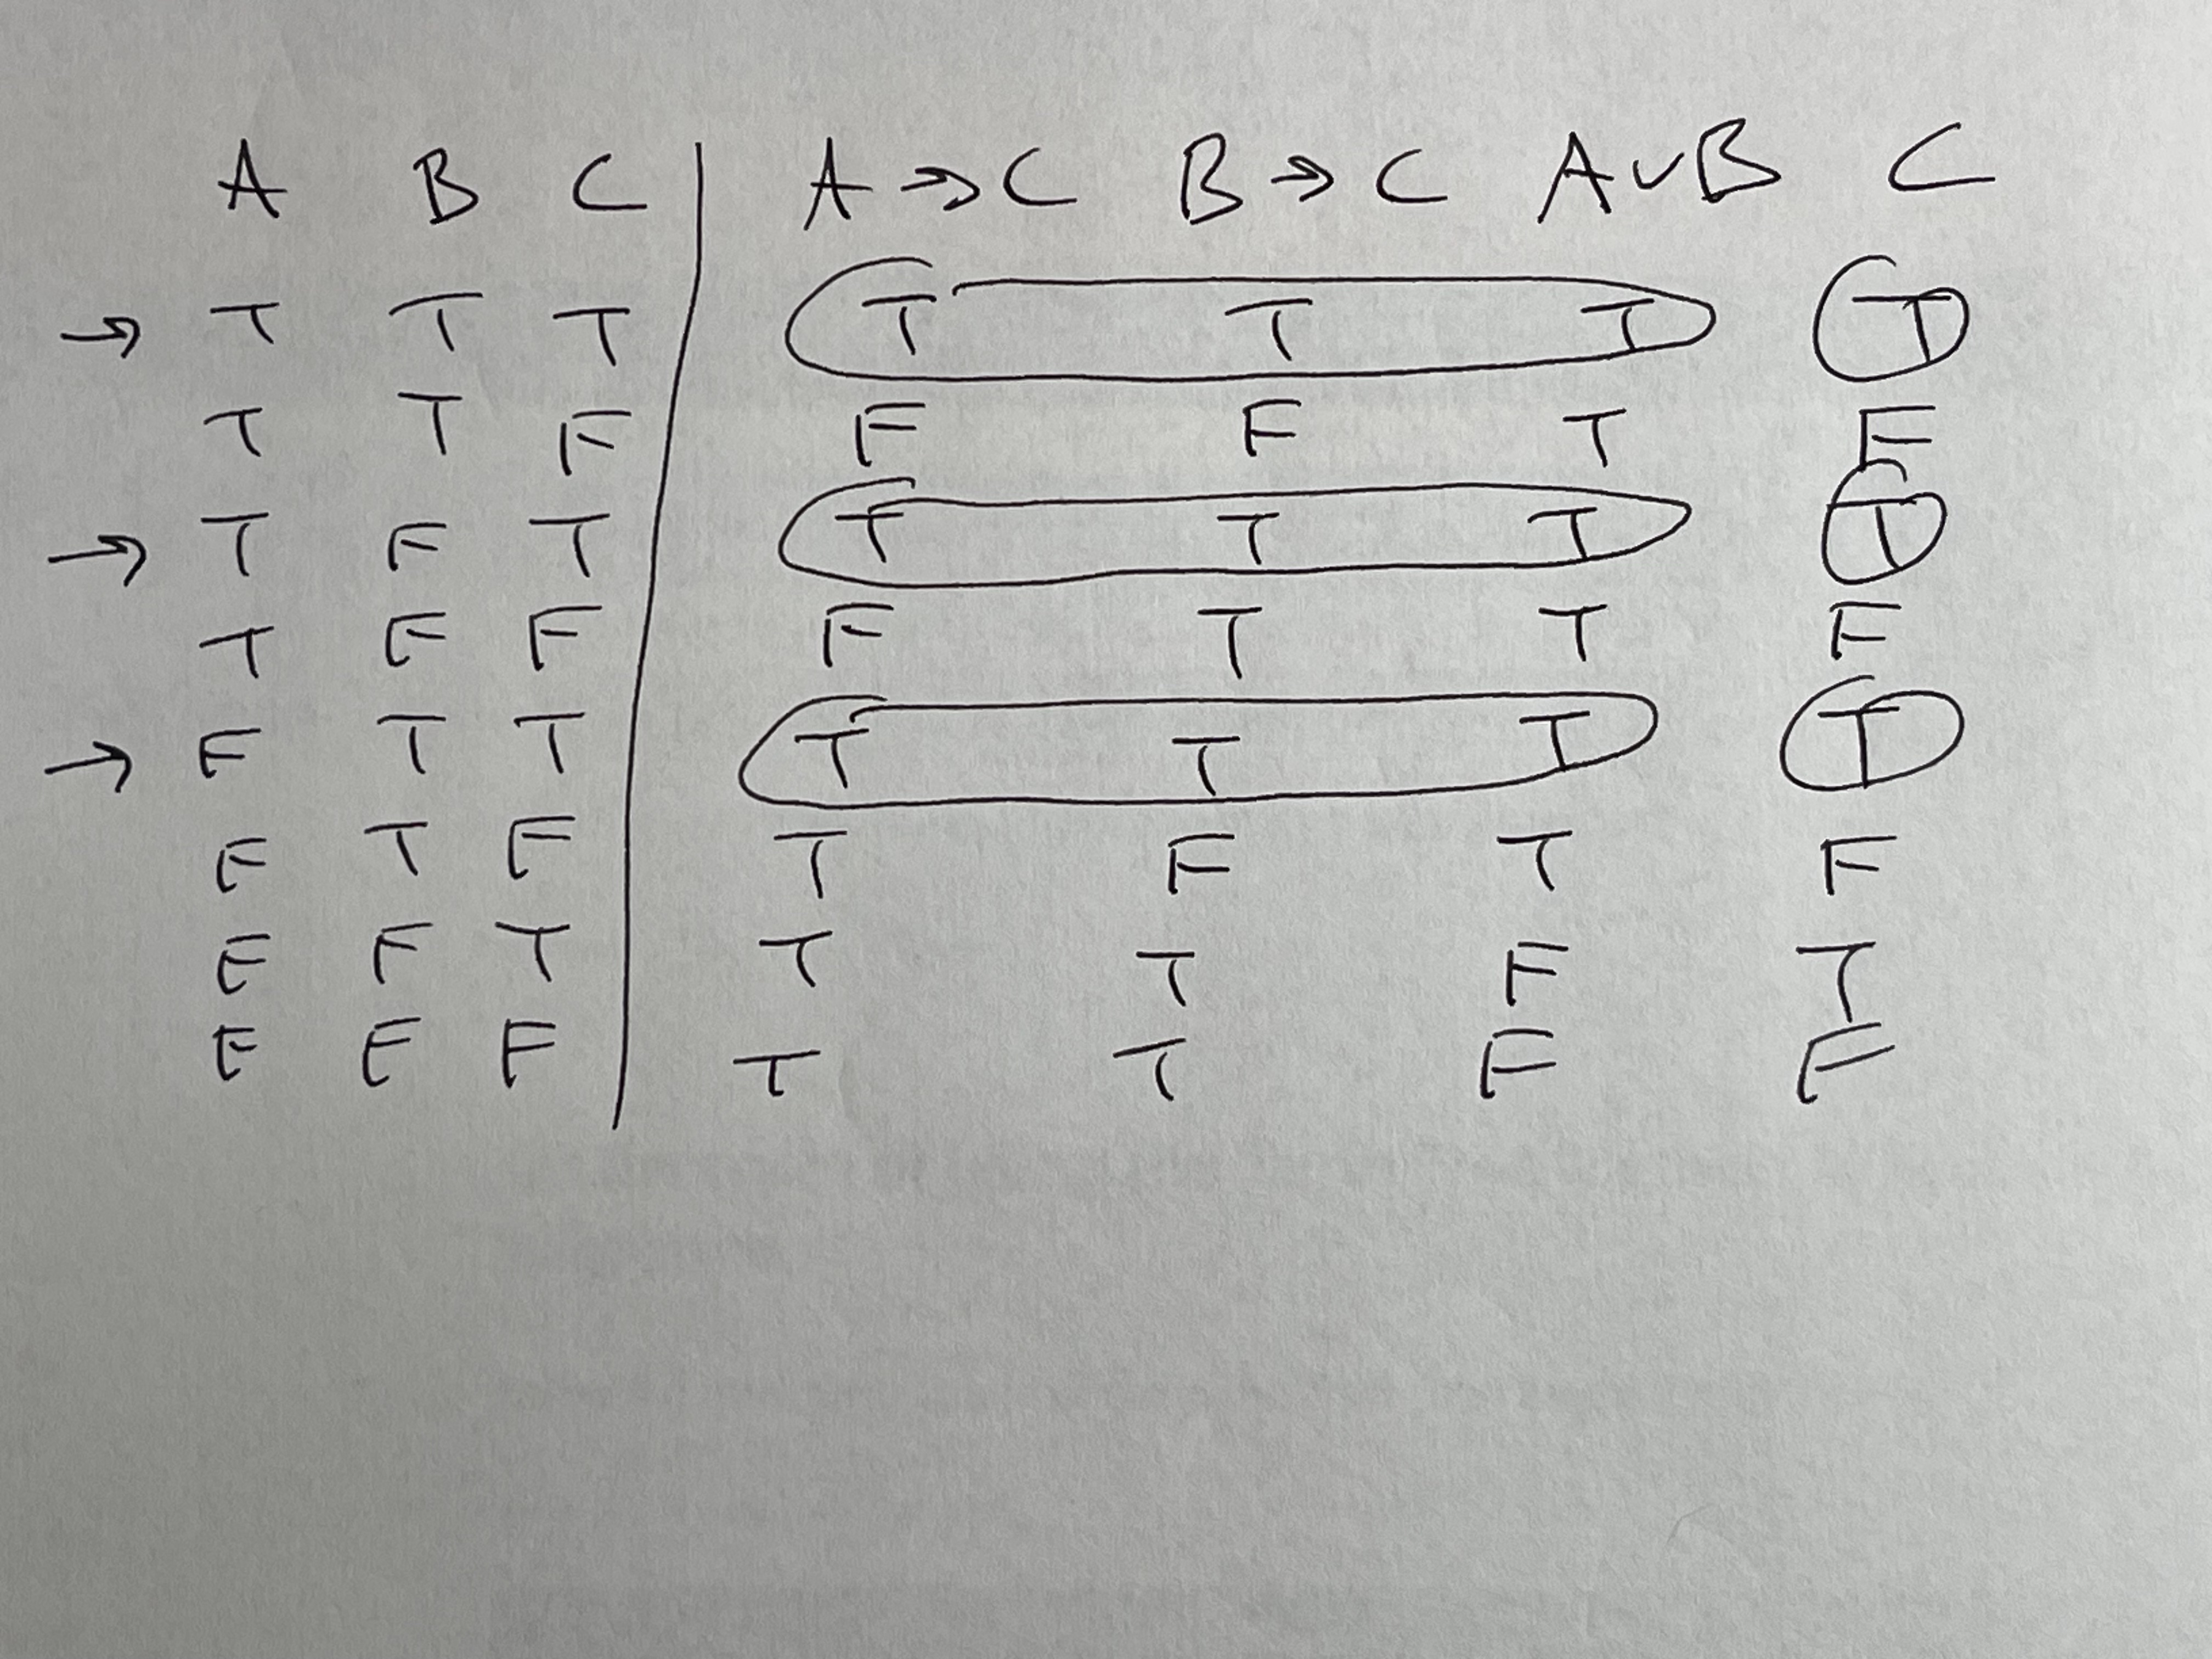 A B C | A → C B → C A ∨ B C
→ T T T | T T T T
T T F | F F T F
→ T F T | T T T T
T F F | F T T F
→ F T T | T T T T
F T F | T F T F
F F T | T T F T
F F F | T T F F